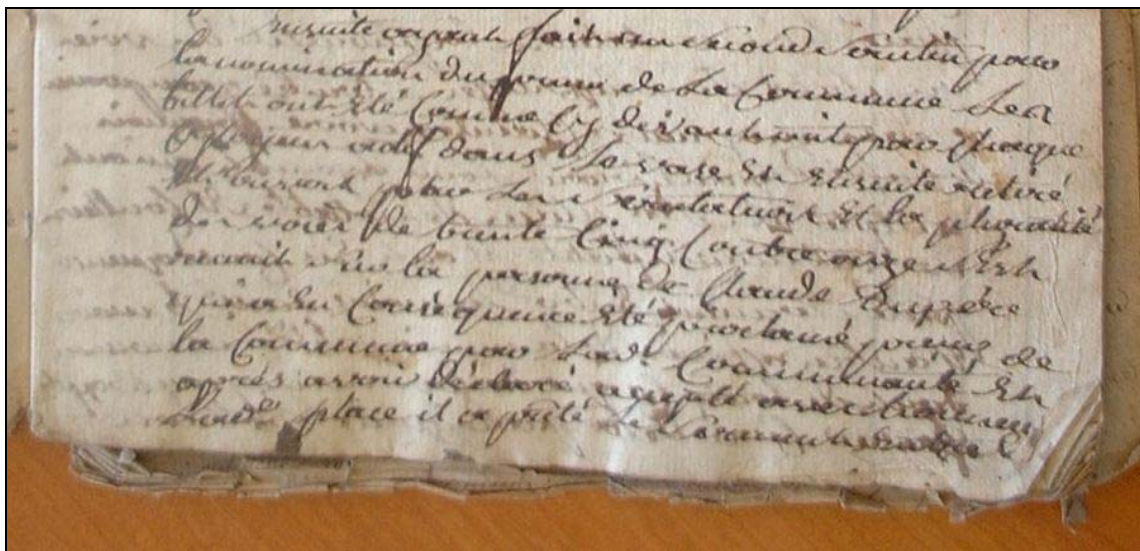 ensuite ayant fait un second scrutin pour
la nomination du preuve de la Commune les
billets ont été comme cy devant mis par chaque
citoyen actif dans le vase et ensuite retiré
pour les scrutateurs et la pluralité
des voix de trente cinq contre onze s'est
réunit sur la personne de Claude Dupère
qui a en conséquence été proclamé
la Commune pour lad. Communauté et
après avoir déclaré accepté
lad. place il a prêté le serment